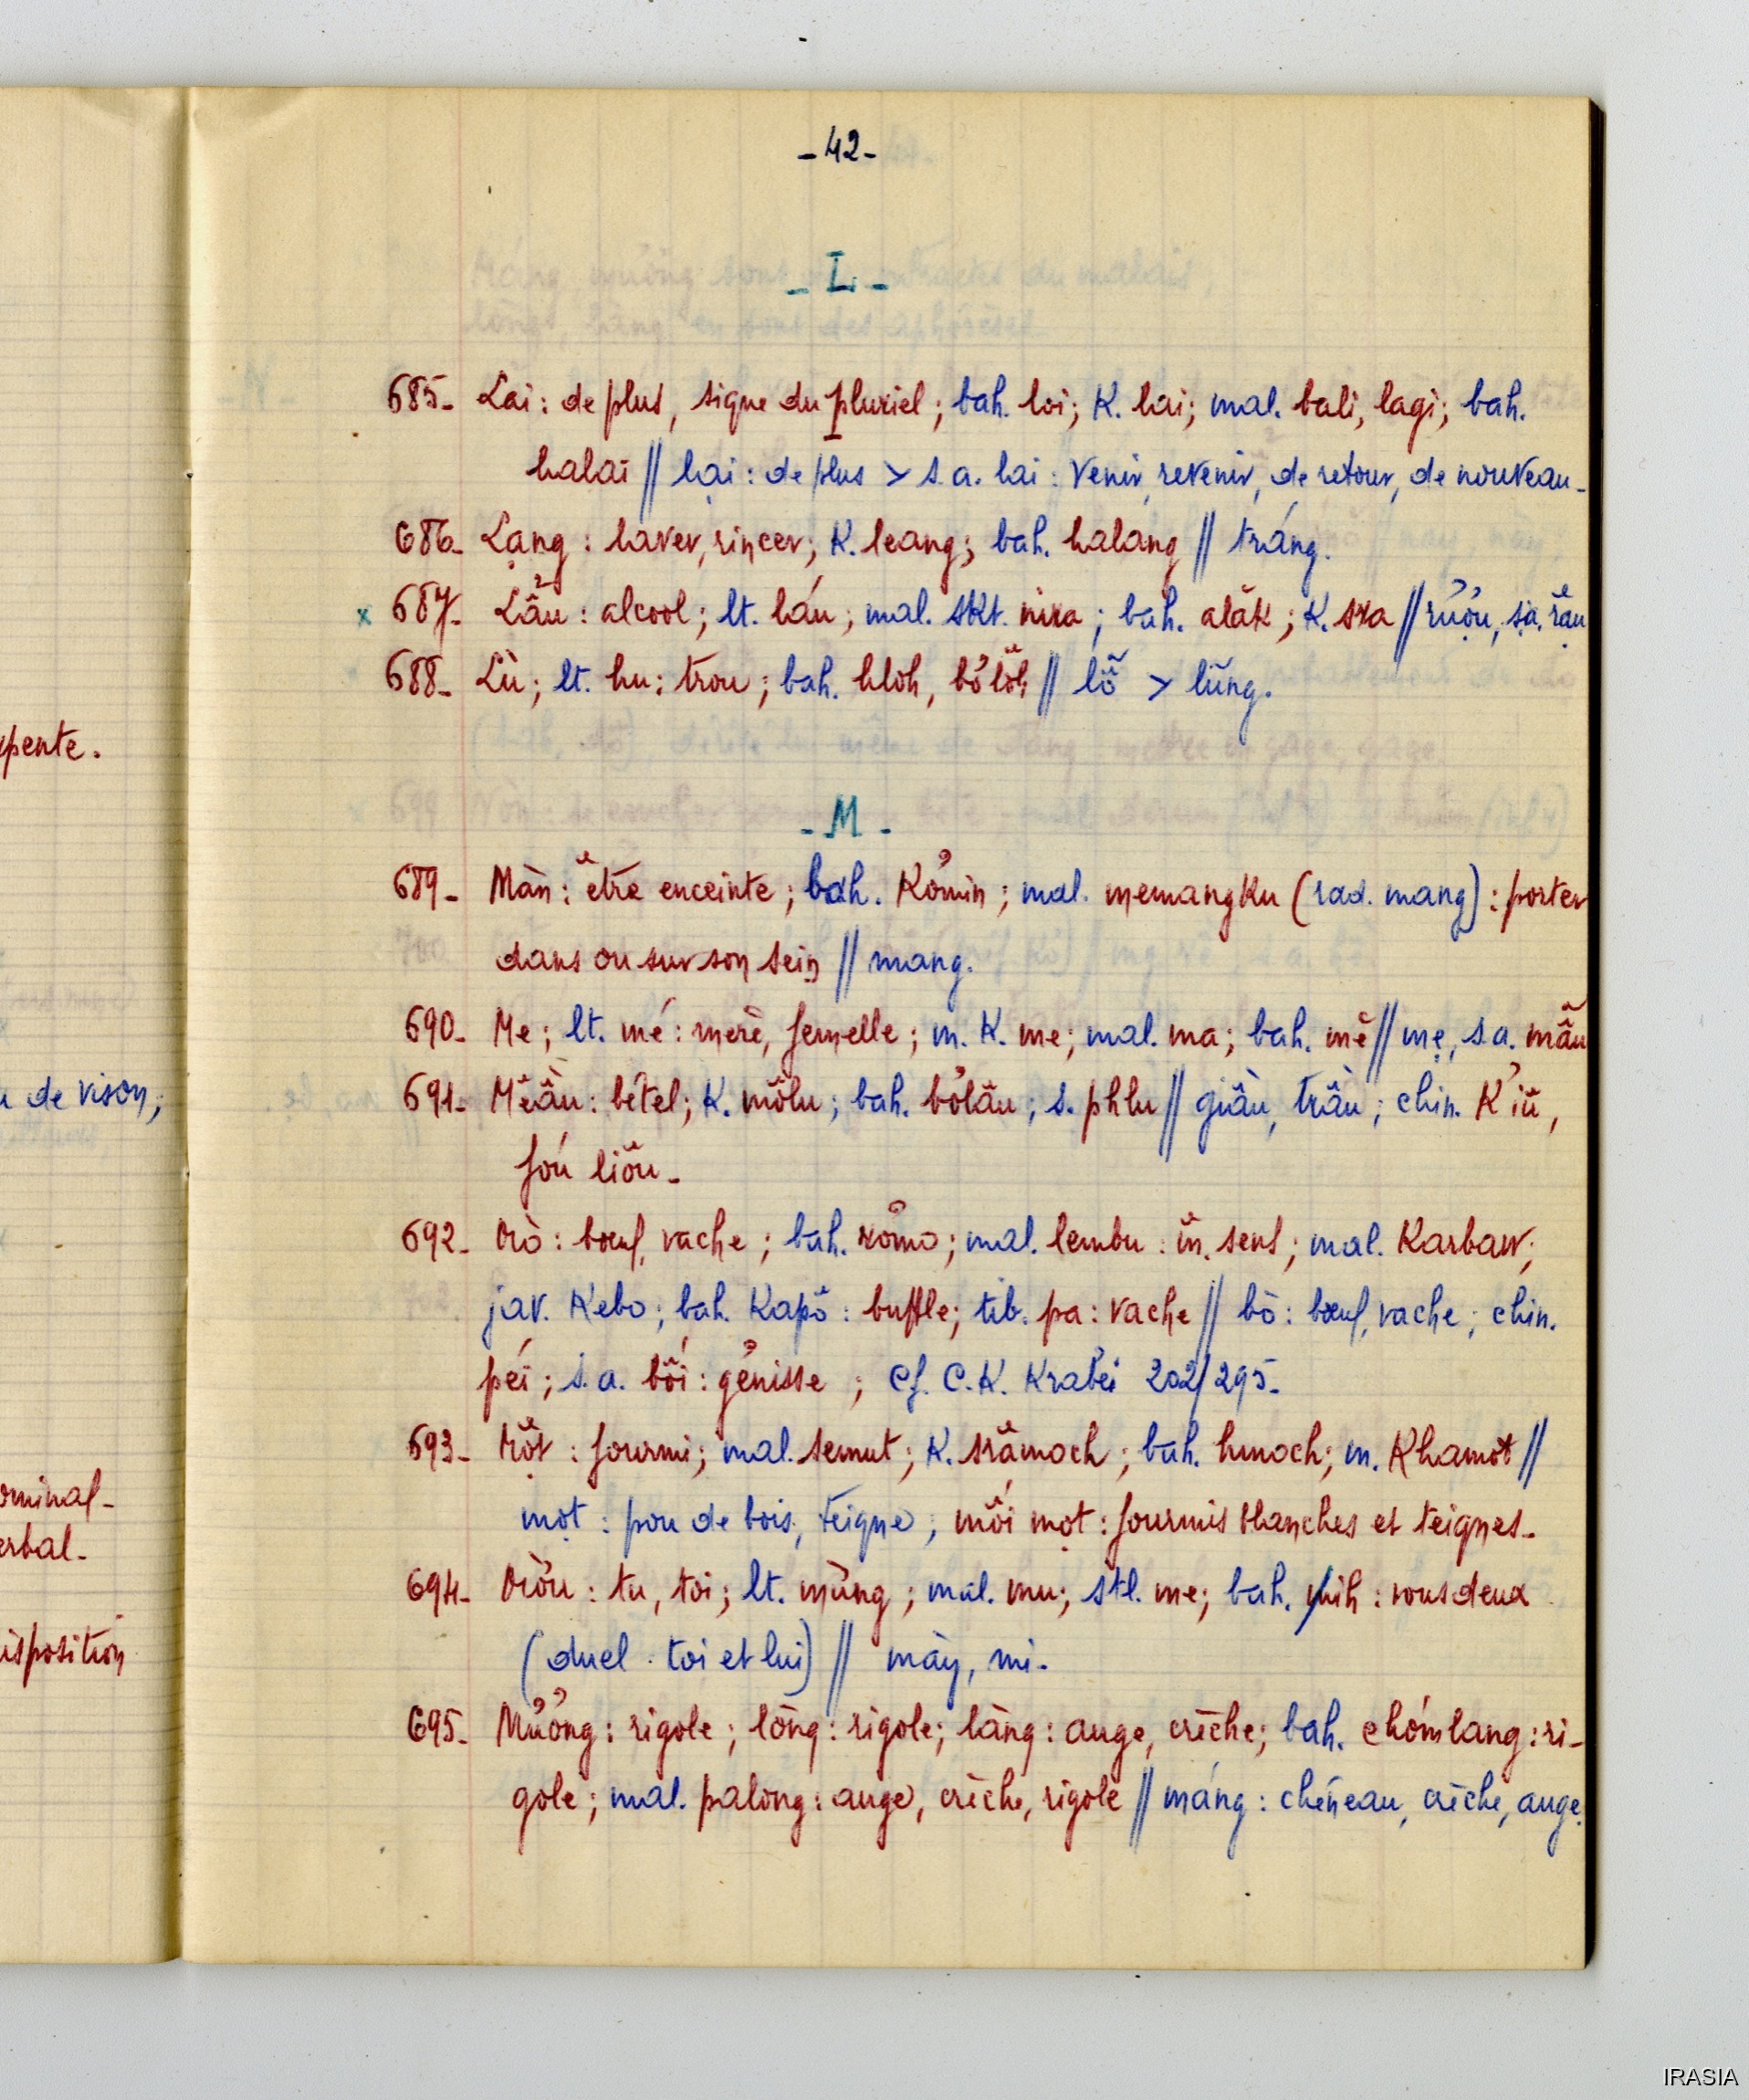 - 42 -
- L -
685- Lai : de plus, signe du pluriel ; bah. loi ; K. lai ; mal. bali, lagi ; bah.
halai // lại : de plus > s.a. lai : venir, revenir, de retour, de nouveau -
686- Lạng : laver, rincer ; K. leang ; bah. halang // tráng.
x 687- Lẩu : alcool ; lt. láu ; mal. skt. nira ; bah. alăk ; K. sra // rượu, s.a.
688- Lù ; lt. hu : trou ; bah. hloh, // lỗ > lũng.
- M -
689- Màn : être enceinte ; bah. Kơ̆min ; mal. memangku (rad. mang) : porter
dans ou sur son sein // mang.
690- Me ; lt. mé : mère, femelle ; m. K. me ; mal. ma ; bah. mĕ // mẹ, s.a. mẫu
691- : bétel ; K. mŏlu ; bah. bơ̆lâu ; s. phlu // giầu, trầu ; chin. K'iŭ,
fóu liŏu -
692- Mò : bœuf, vache ; bah. rơ̆mo ; mal. lembu : m̂. sens ; mal. Karbaw ;
jav. Kebo ; bah. Kapô : buffle ; tib. pa : vache // bò : bœuf, vache ; chin.
péi ; s.a. bối : génisse ; Cf. C.K. Krabĕi 202/295 -
693- Một : fourmi ; mal. semut ; K. srămoch ; bah. hmoch ; m. Khamot //
mọt : pou de bois, teigne ; mối mọt : fourmis blanches et teignes -
694- Mơu : tu, toi ; lt. mừng ; mal. mu ; stl. me ; bah. mih : vous deux
(duel : toi et lui) // mày, mi -
695- Mương : rigole ; lòng : rigole ; làng : auge, crèche ; bah. chớmlang : ri-
gole ; mal. palong : auge, crèche, rigole // máng : chéneau, crèche, auge.
pente.
u de vison ;
ominal -
erbal -
isposition
IRASIA